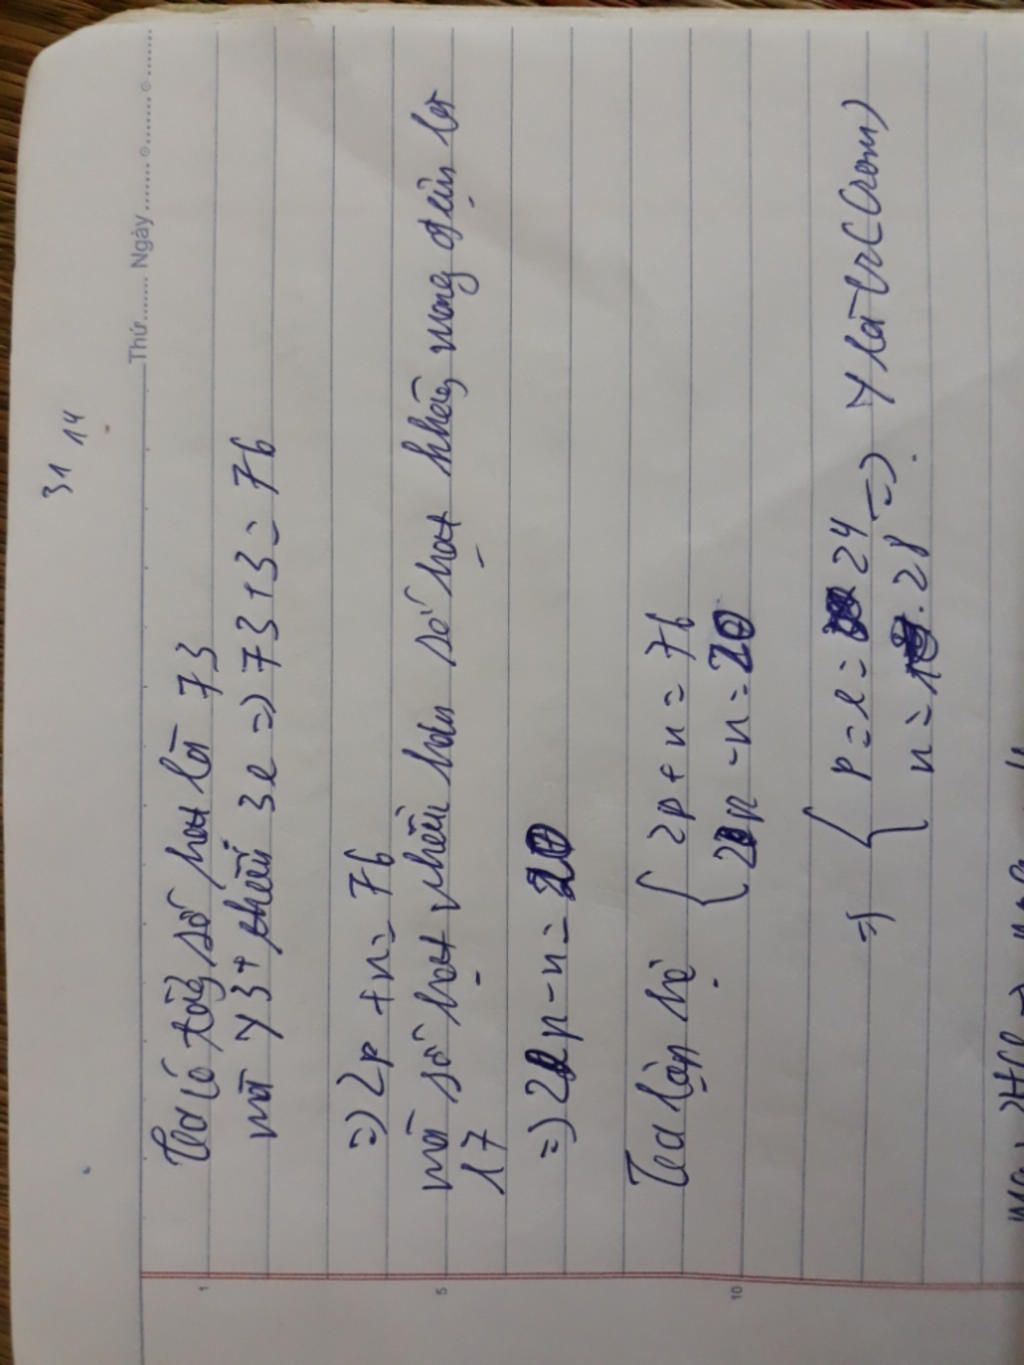 31 14
Thứ........ Ngày ........
Ta có tổng số hạt là 73
mà Y3+ thiếu 3e => 73+3 = 76
=> 2p + n = 76
mà số hạt nhiều hơn số hạt không mang điện là
17
=> 2p - n = 20
Ta lập hệ { 2p + n = 76
2p - n = 20
=> { p = e = 24
n = 28 => Y là Cr (Crom)
1
5
10